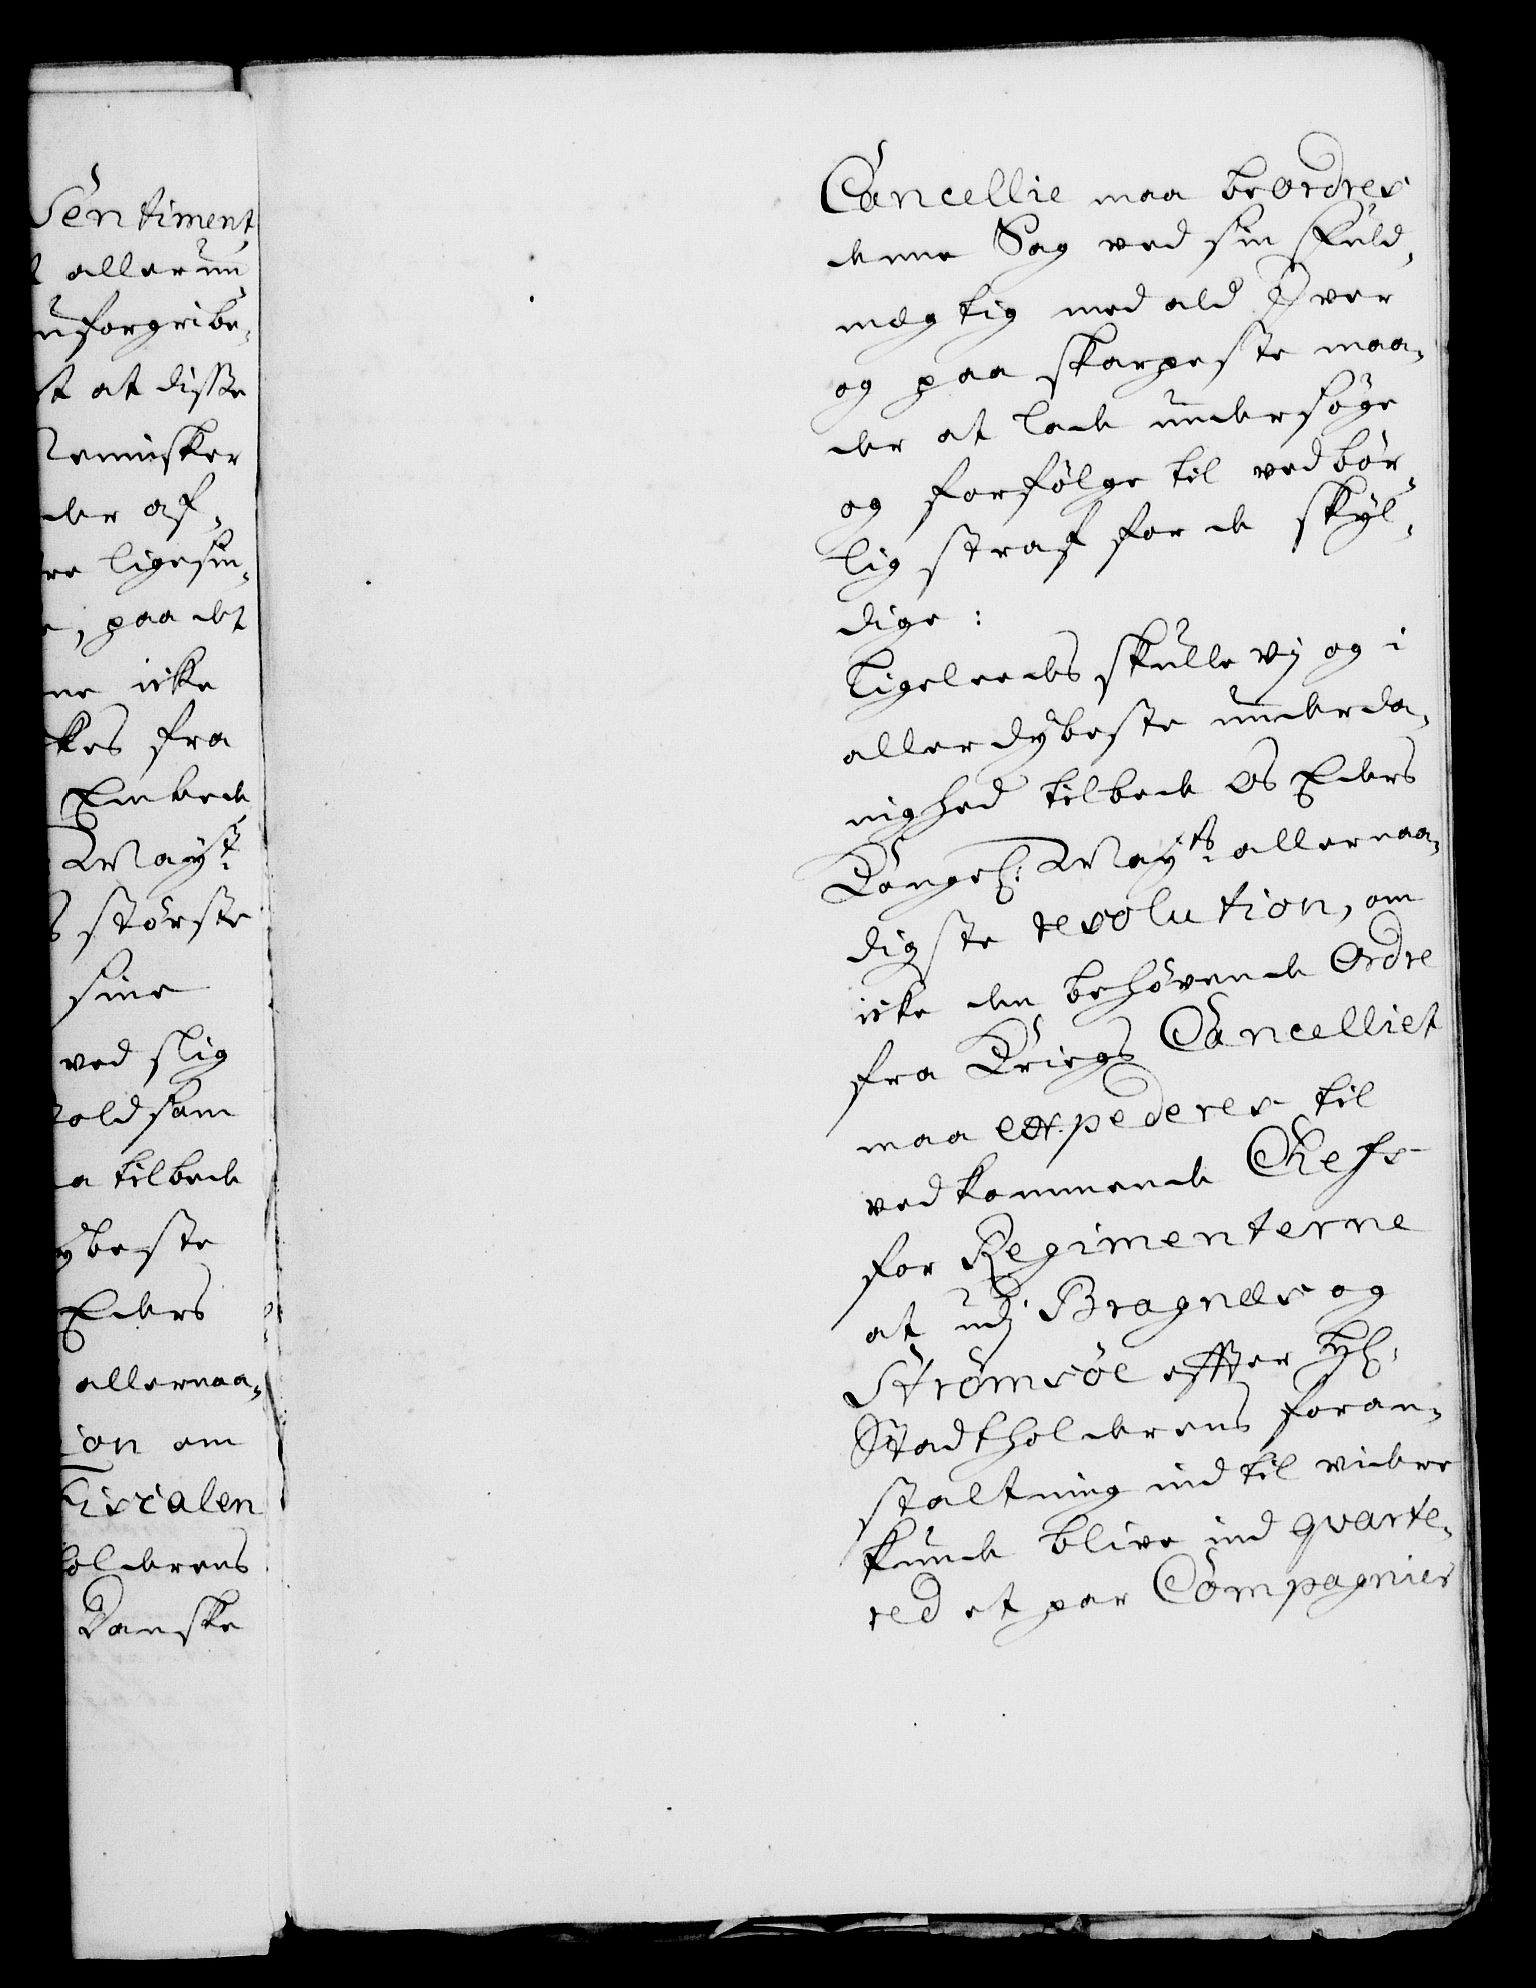 Sentiment
allerun
uforgribe,
at disse
Mennisker
der af,
ligesin,
, paa det
icke
kes fra
Embede
Mayt:
störste
sine
ved slig
voldsam
tilbede
ybeste
Eders
allernaa,
ion om
Fiscalen
holderens
Danske
Cancellie maa beordres
denne Sag ved sin Fuld,
megtig med ald Iver
og paa skarpeste maa,
der at lade undersöge
og forfölge til vedbör,
lig straf for de skyl,
dige:
Ligeleedes skulle vj og i
allerdybeste underda,
nighed tilbede os Eders
Kongel: Mayts: allernaa,
digste resolution, om
icke den behövende Ordre
fra Kriegs Cancelliet
maa expederes til
vedkommende Chefs
for Regimenterne
at udj Bragnes og
Strömsöe effter hr:
Stadtholderens foran,
staltning ind til videre
kunde blive ind qvarte,
red et par Compagnier